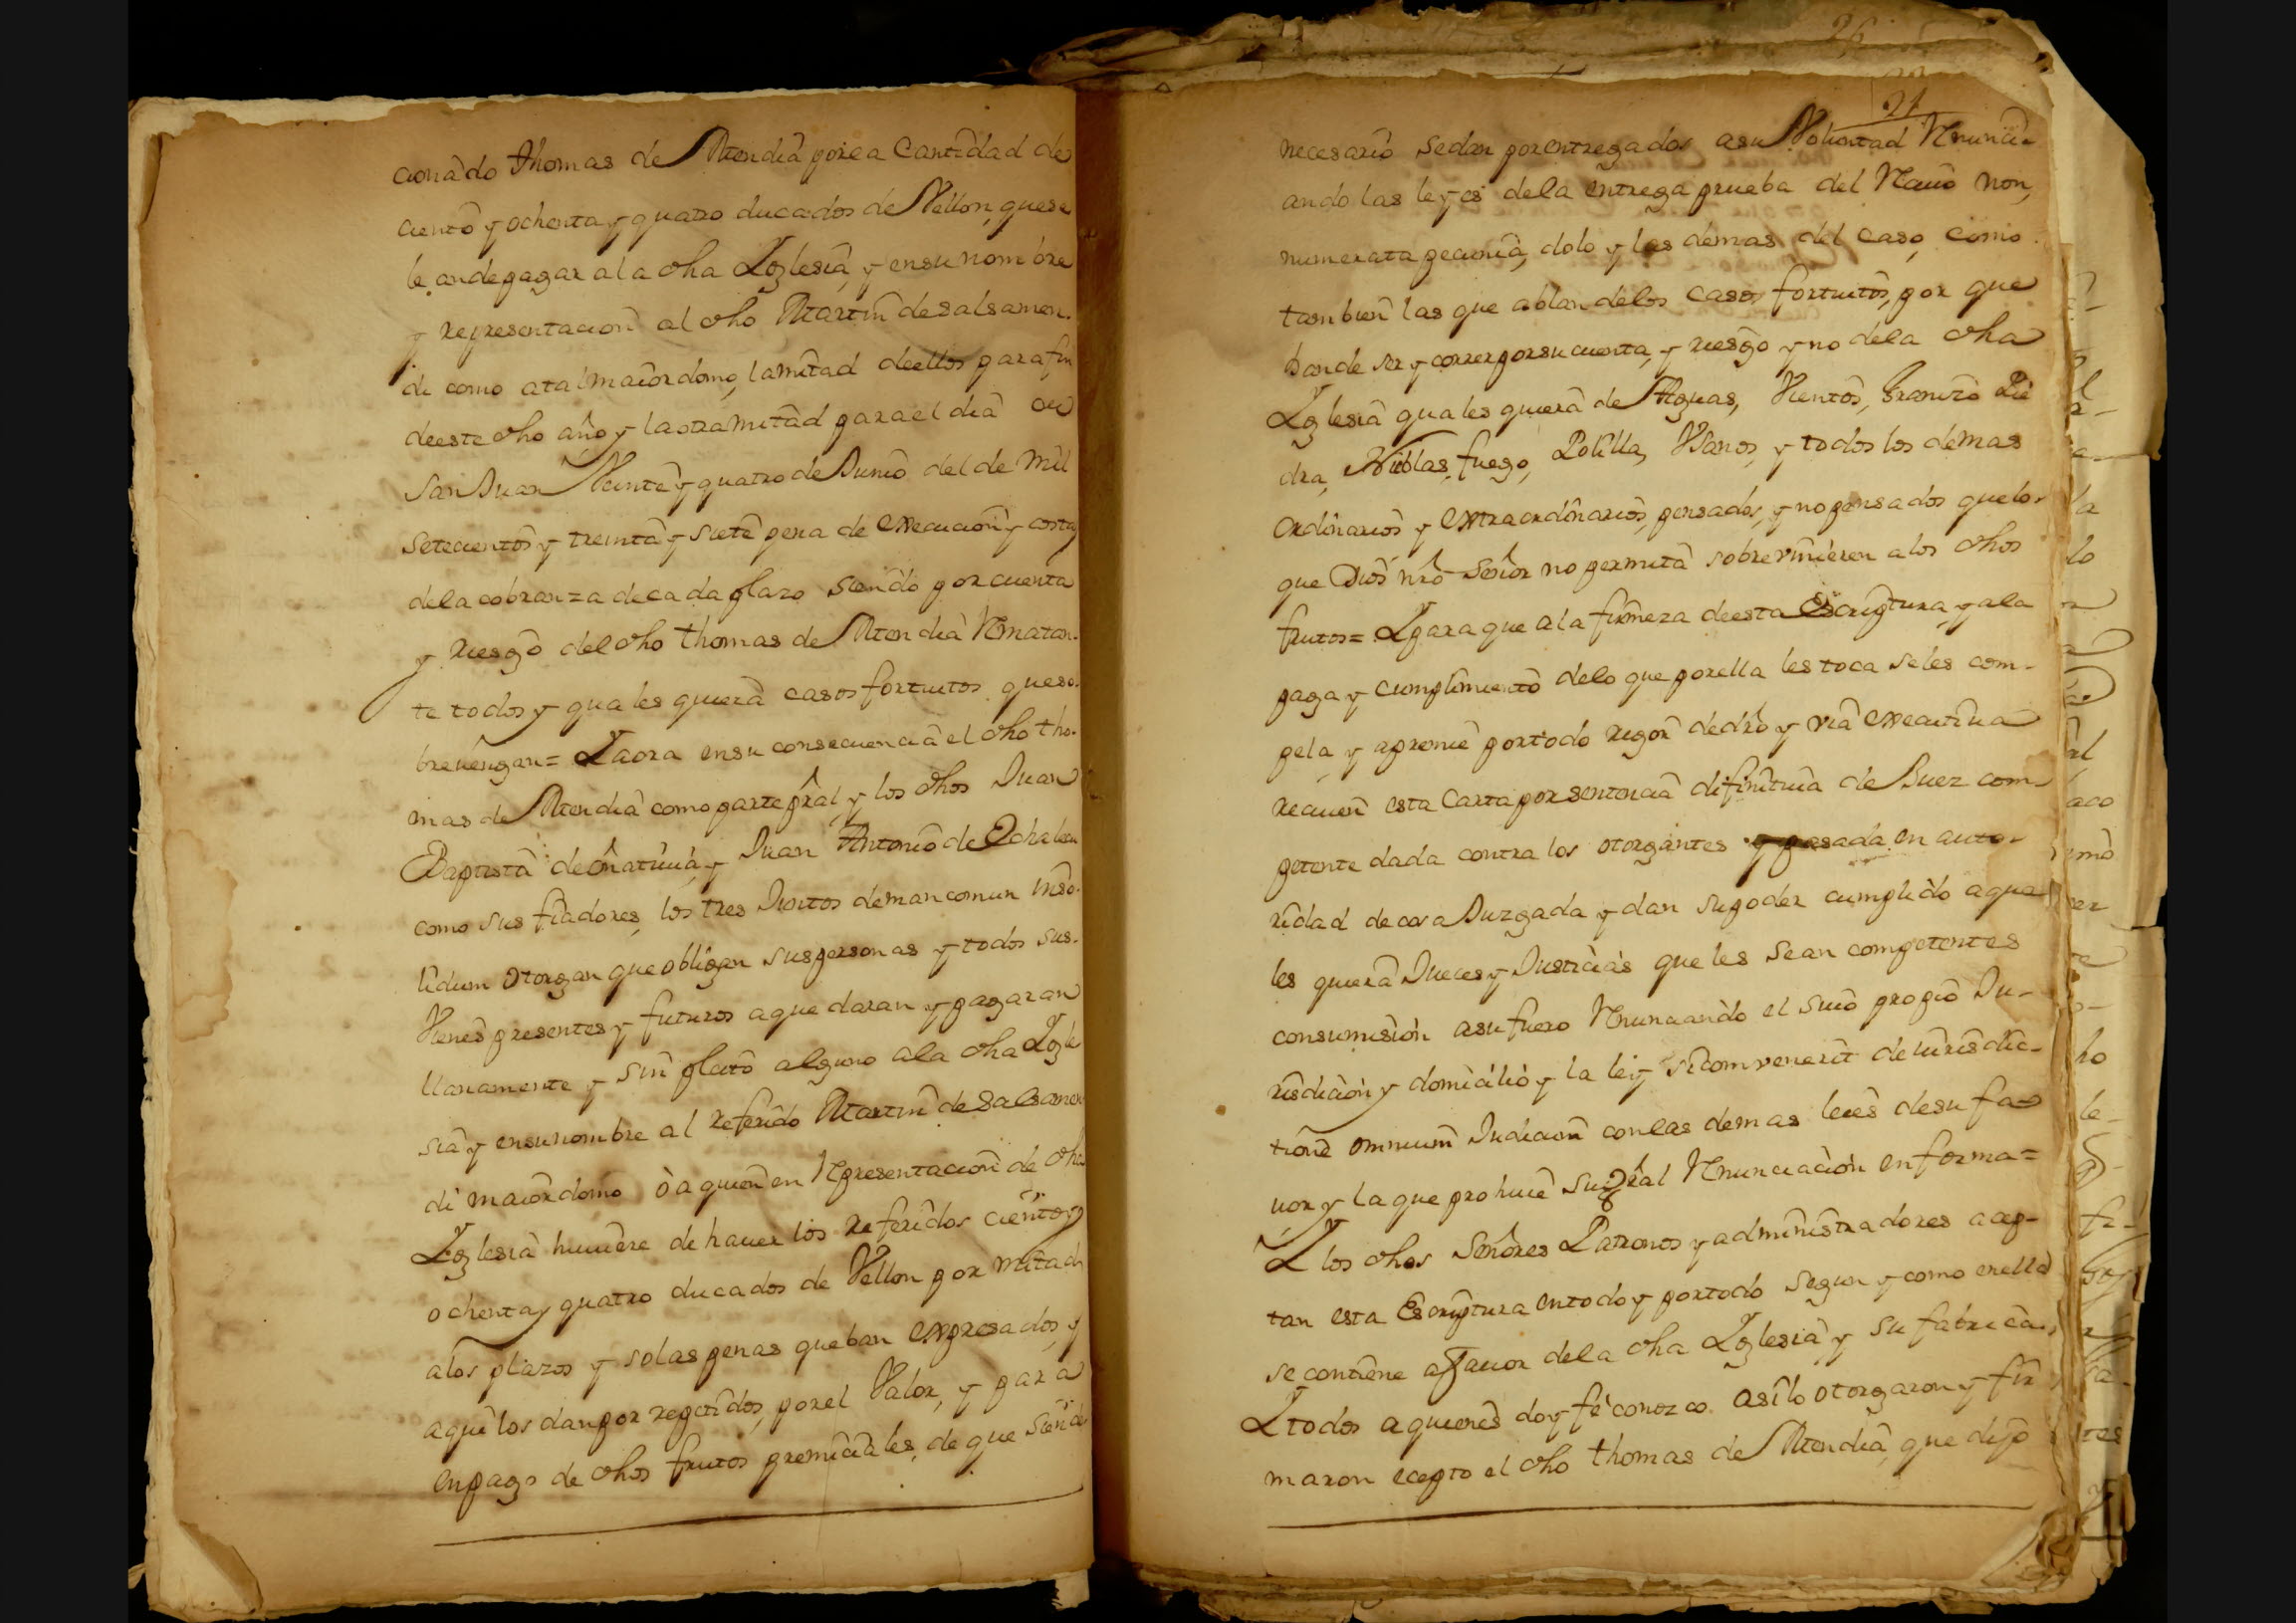 cionado Thomas de Mendia por la Cantidad de
ciento y ochenta y quatro ducados de Vellon, que se
le ande pagar a la dha Yglesia, y en su nombre
y representacion al dho Martin de Salsamen-
di como a tal maiordomo, la mitad de ellos para fin
de este dho año y la otra mitad para el dia de
San Juan Veinte y quatro de Junio del de mil
setecientos y treinta y siete pena de execucion y costas
de la cobranza de cada plazo siendo por cuenta
y riesgo del dho thomas de Mendia Rematan-
te todos y quales quiera casos fortuitos que so-
brevengan = Y aora en su consecuencia el dho tho-
mas de Mendia como parte pral, y los dhos Juan
Baptista de Oñativia, y Juan Antonio de
como sus fiadores, los tres Juntos de mancomun inso-
lidum otorgan que obligan sus personas y todos sus
Vienes presentes y futuros a que daran y pagaran
llanamente y sin pleito alguno a la dha Ygle
sia y en su nombre al referido Martin de Salsamen
di maiordomo ò a quien en Representacion de dha
Yglesia huuiere de hauer los referidos ciento y
ochenta y quatro ducados de Vellon por mitad
a los plazos y so las penas que ban expresados, y
aqui los dan por repetidos, por el Valor, y para
en pago de dhos frutos premiciales, de que siendo
26
21
necesario se dan por entregados a su Voluntad Renunci-
ando las leyes de la entrega prueba del Reciuo non,
numerata pecunia, dolo y las demas del caso, como
tambien las que ablan de los casos fortuitos, por que
han de ser y correr por su cuenta, y riesgo y no de la dha
Yglesia quales quiera de Aguas, Vientos, Granizo Pie
dra, Nieblas, fuego, Polilla, Vsanos, y todos los demas
Ordinarios y extraordinarios, pensados, y no pensados que lo
que Dios nro Señor no permita sobrevinieren a los dhos
frutos = Y para que a la firmeza de esta Escriptura, y a la
paga y cumplimiento de lo que por ella les toca se les com-
pela y apremie por todo rigor de dro y via executiva
reciuen esta Carta por sentencia difinitiua de Juez com-
petente dada contra los otorgantes y pasada en auto-
ridad de cosa Juzgada y dan su poder cumplido a qua
les quiera Jueces y Justicias que les sean competentes
con sumision a su fuero Renunciando el suio propio Ju-
risdicion y domicilio y la ley si comvenerit de iurisdic-
tione omnium Judicum con las demas leies de su fa-
uor y la que prohiue su gral Renunciacion en forma =
Y los dhos Señores Patronos y administradores acep-
tan esta Escriptura en todo y por todo segun y como en ella
se contiene a fauor de la dha Yglesia y su fabrica,
Y todos a quienes doy fe conozco asi lo otorgaron y fir
maron ecepto el dho thomas de Mendia, que dijo